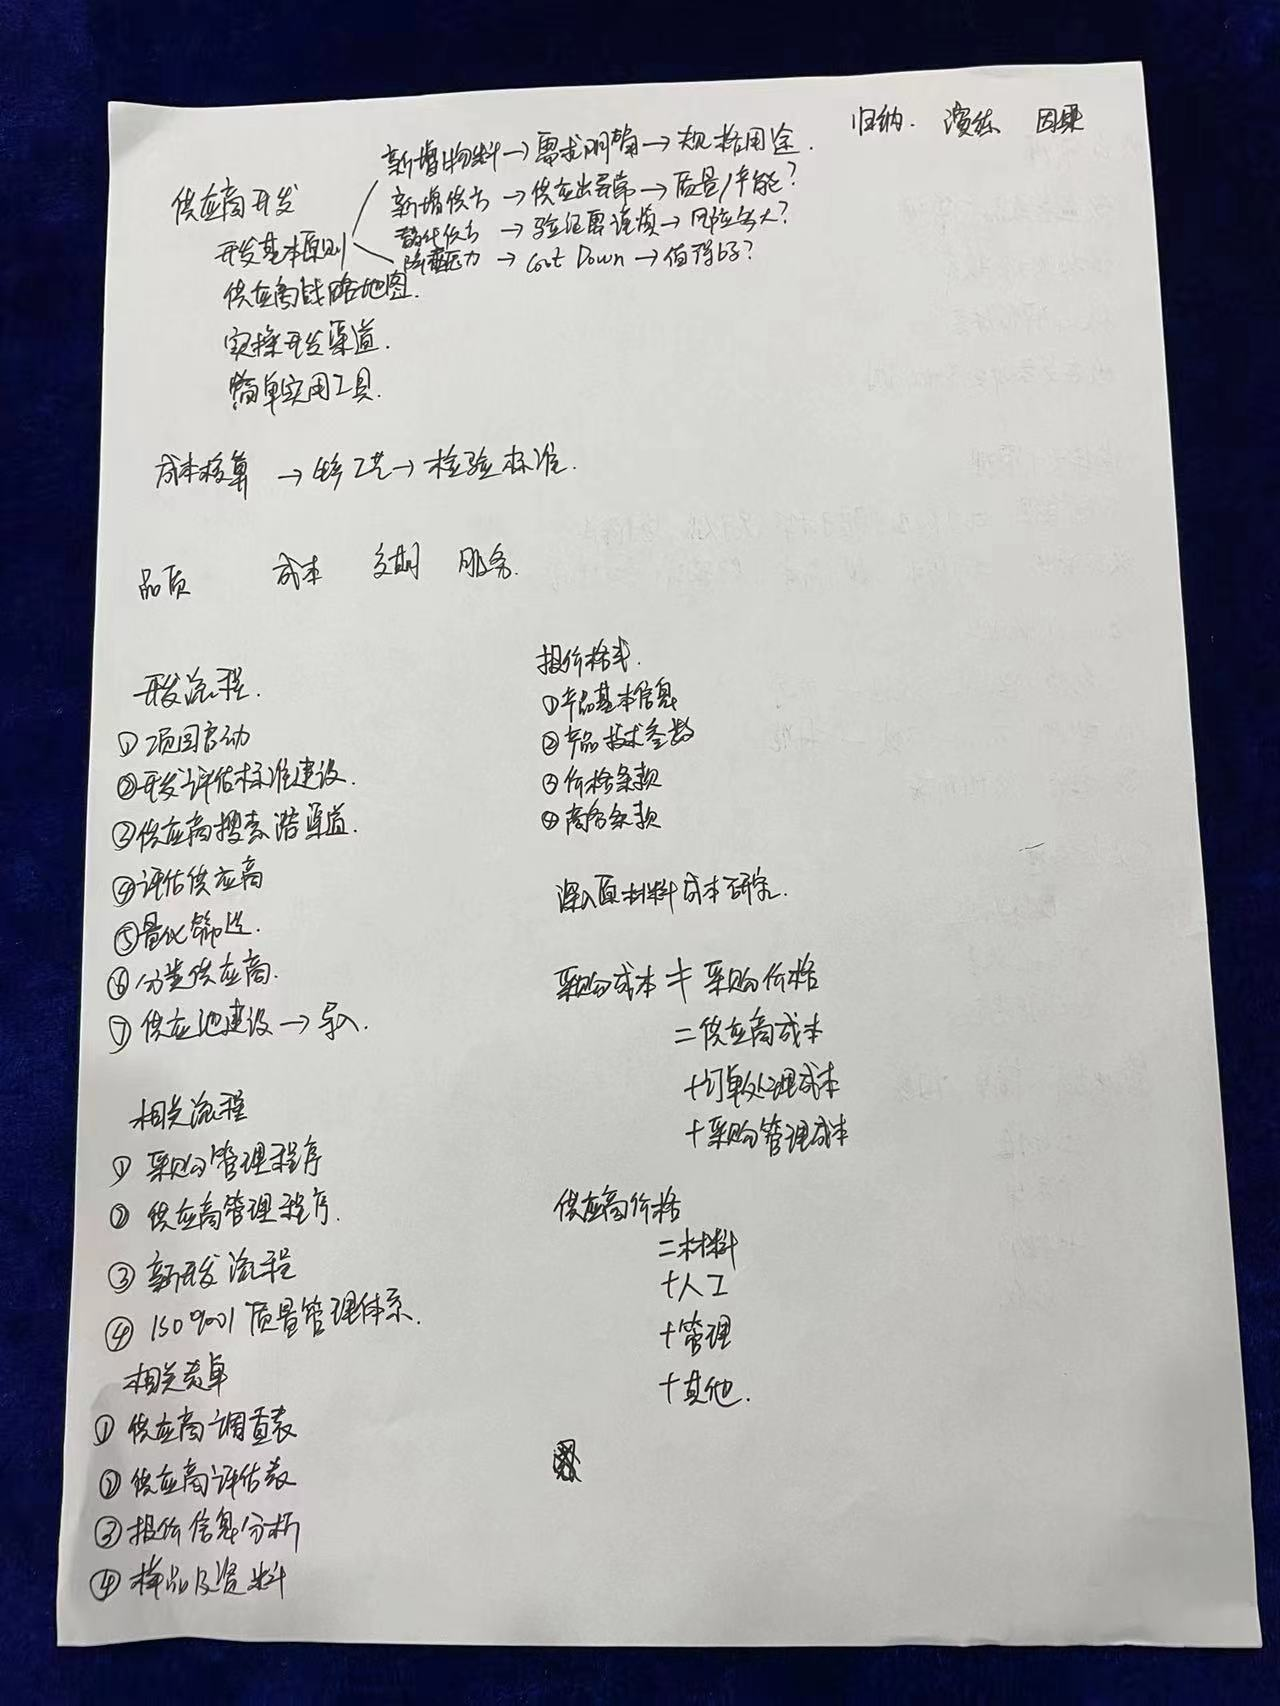 归纳. 演练 因果
供应商开发
新增物料→需求明确→规格用途.
新增供方→供应出异常→质量/产能?
替代供方→验证需谨慎→风险多大?
降本压力→Cost Down→值得的?
开发基本原则
供应商战略地图.
实操开发渠道.
简单实用工具.
成本核算→ 工艺→检验标准.
品质 成本 交期 服务.
开发流程.
①项目启动
②开发评估标准建设.
③供应商搜索 渠道.
④评估供应商
⑤量化筛选.
⑥分类供应商.
⑦供应池建设→导入.
相关流程
①采购管理程序
②供应商管理程序.
③新开发流程
④ISO9001质量管理体系.
相关表单
①供应商调查表
②供应商评估表
③报价信息分析
④样品及资料
报价格式.
①产品基本信息
②产品技术参数
③价格条款
④商务条款
深入原材料成本研究.
采购成本≠采购价格
=供应商成本
+订单处理成本
+采购管理成本
供应商价格
=材料
+人工
+管理
+其他.